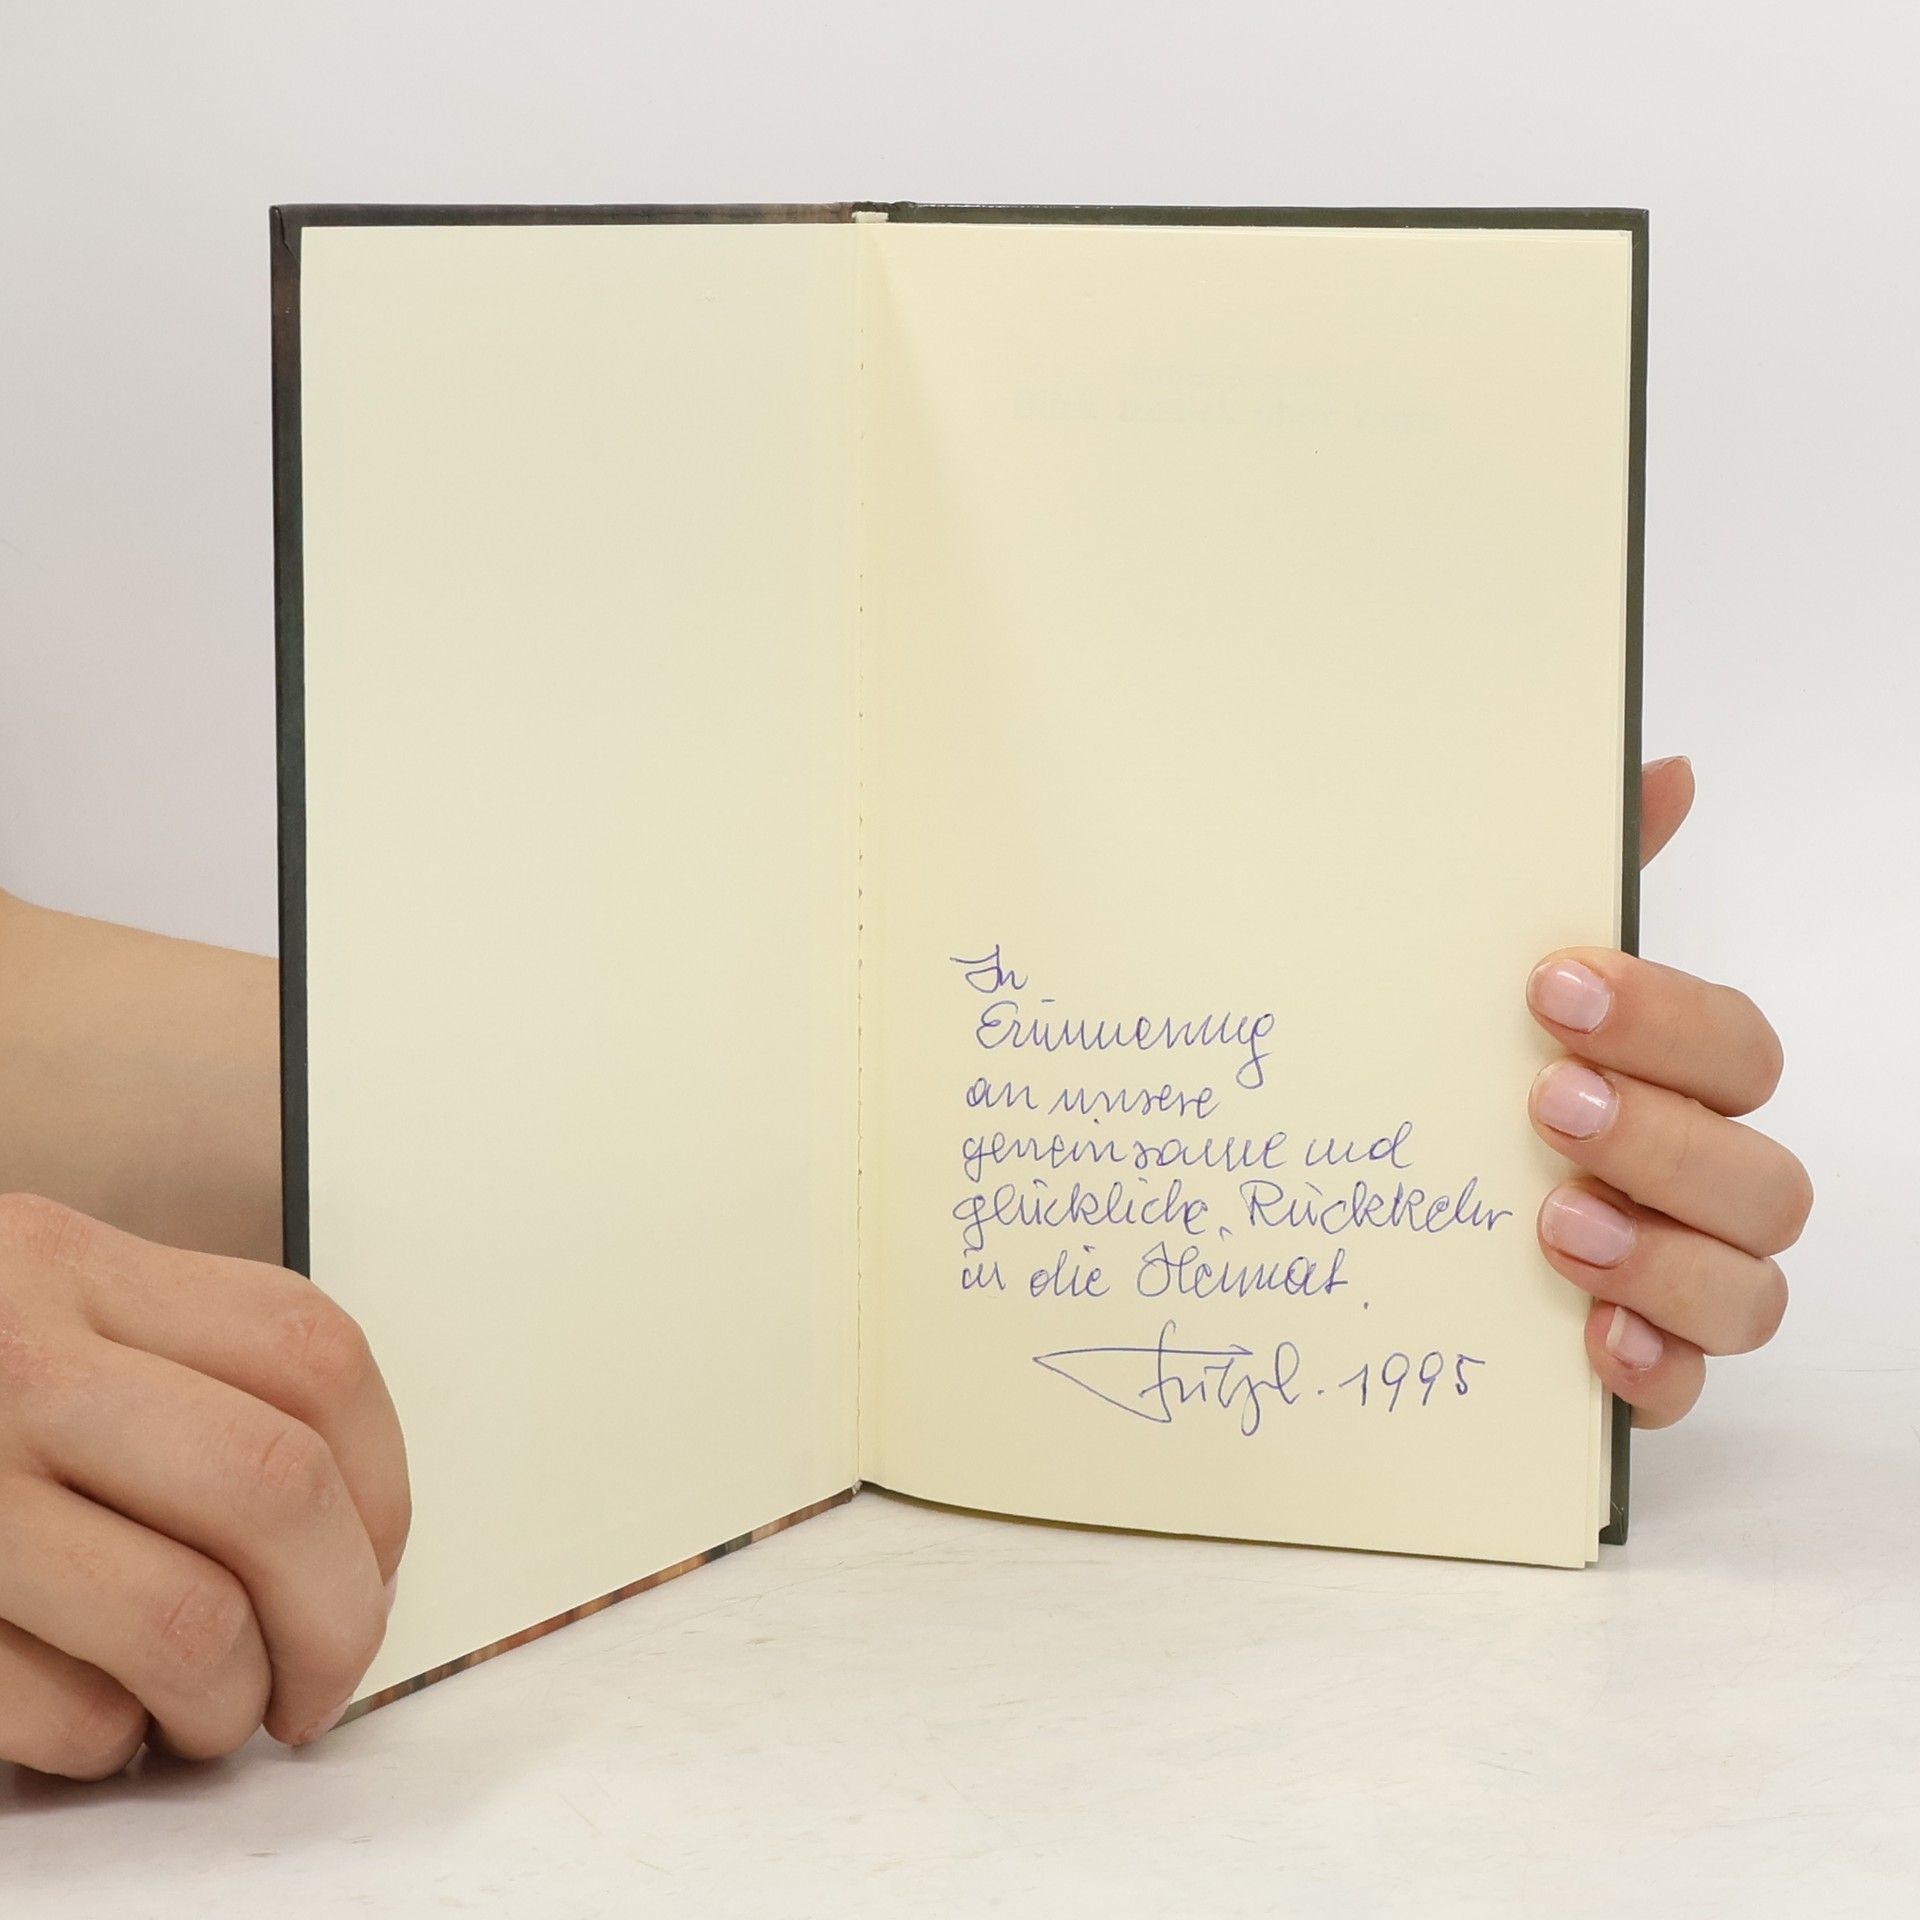 In
Erinnerung
an unsere
gemeinsame und
glückliche Rückkehr
in die Heimat.
1995